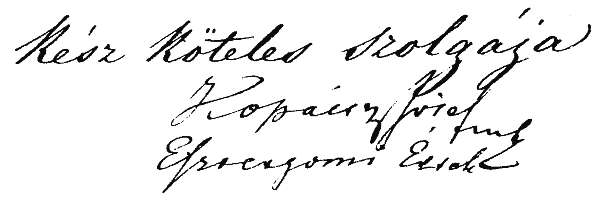 Kész Köteles szolgája
Kopácsy József
Esztergomi Érsek